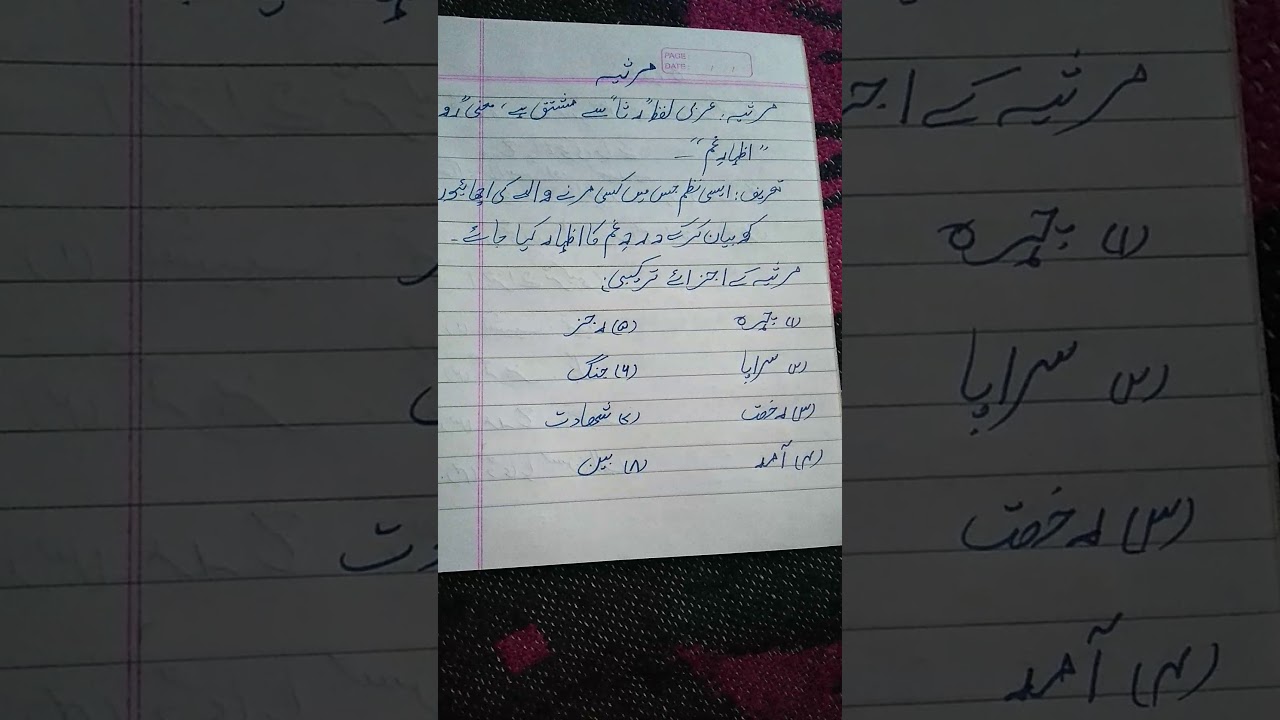 PAGE
DATE / /
مرثیہ
مرثیہ: عربی لفظ "رثا" سے مشتق ہے، معنی "رو
"اظہارِ غم" ــ
تعریف: ایسی نظم جس میں کسی مرنے والے کی اچھائیوں
کو بیان کرکے درد و غم کا اظہار کیا جائے۔
مرثیہ کے اجزائے ترکیبی:
(۱) چہرہ (۵) رجز
(۲) سراپا (۶) جنگ
(۳) رخصت (۷) شہادت
(۴) آمد (۸) بین